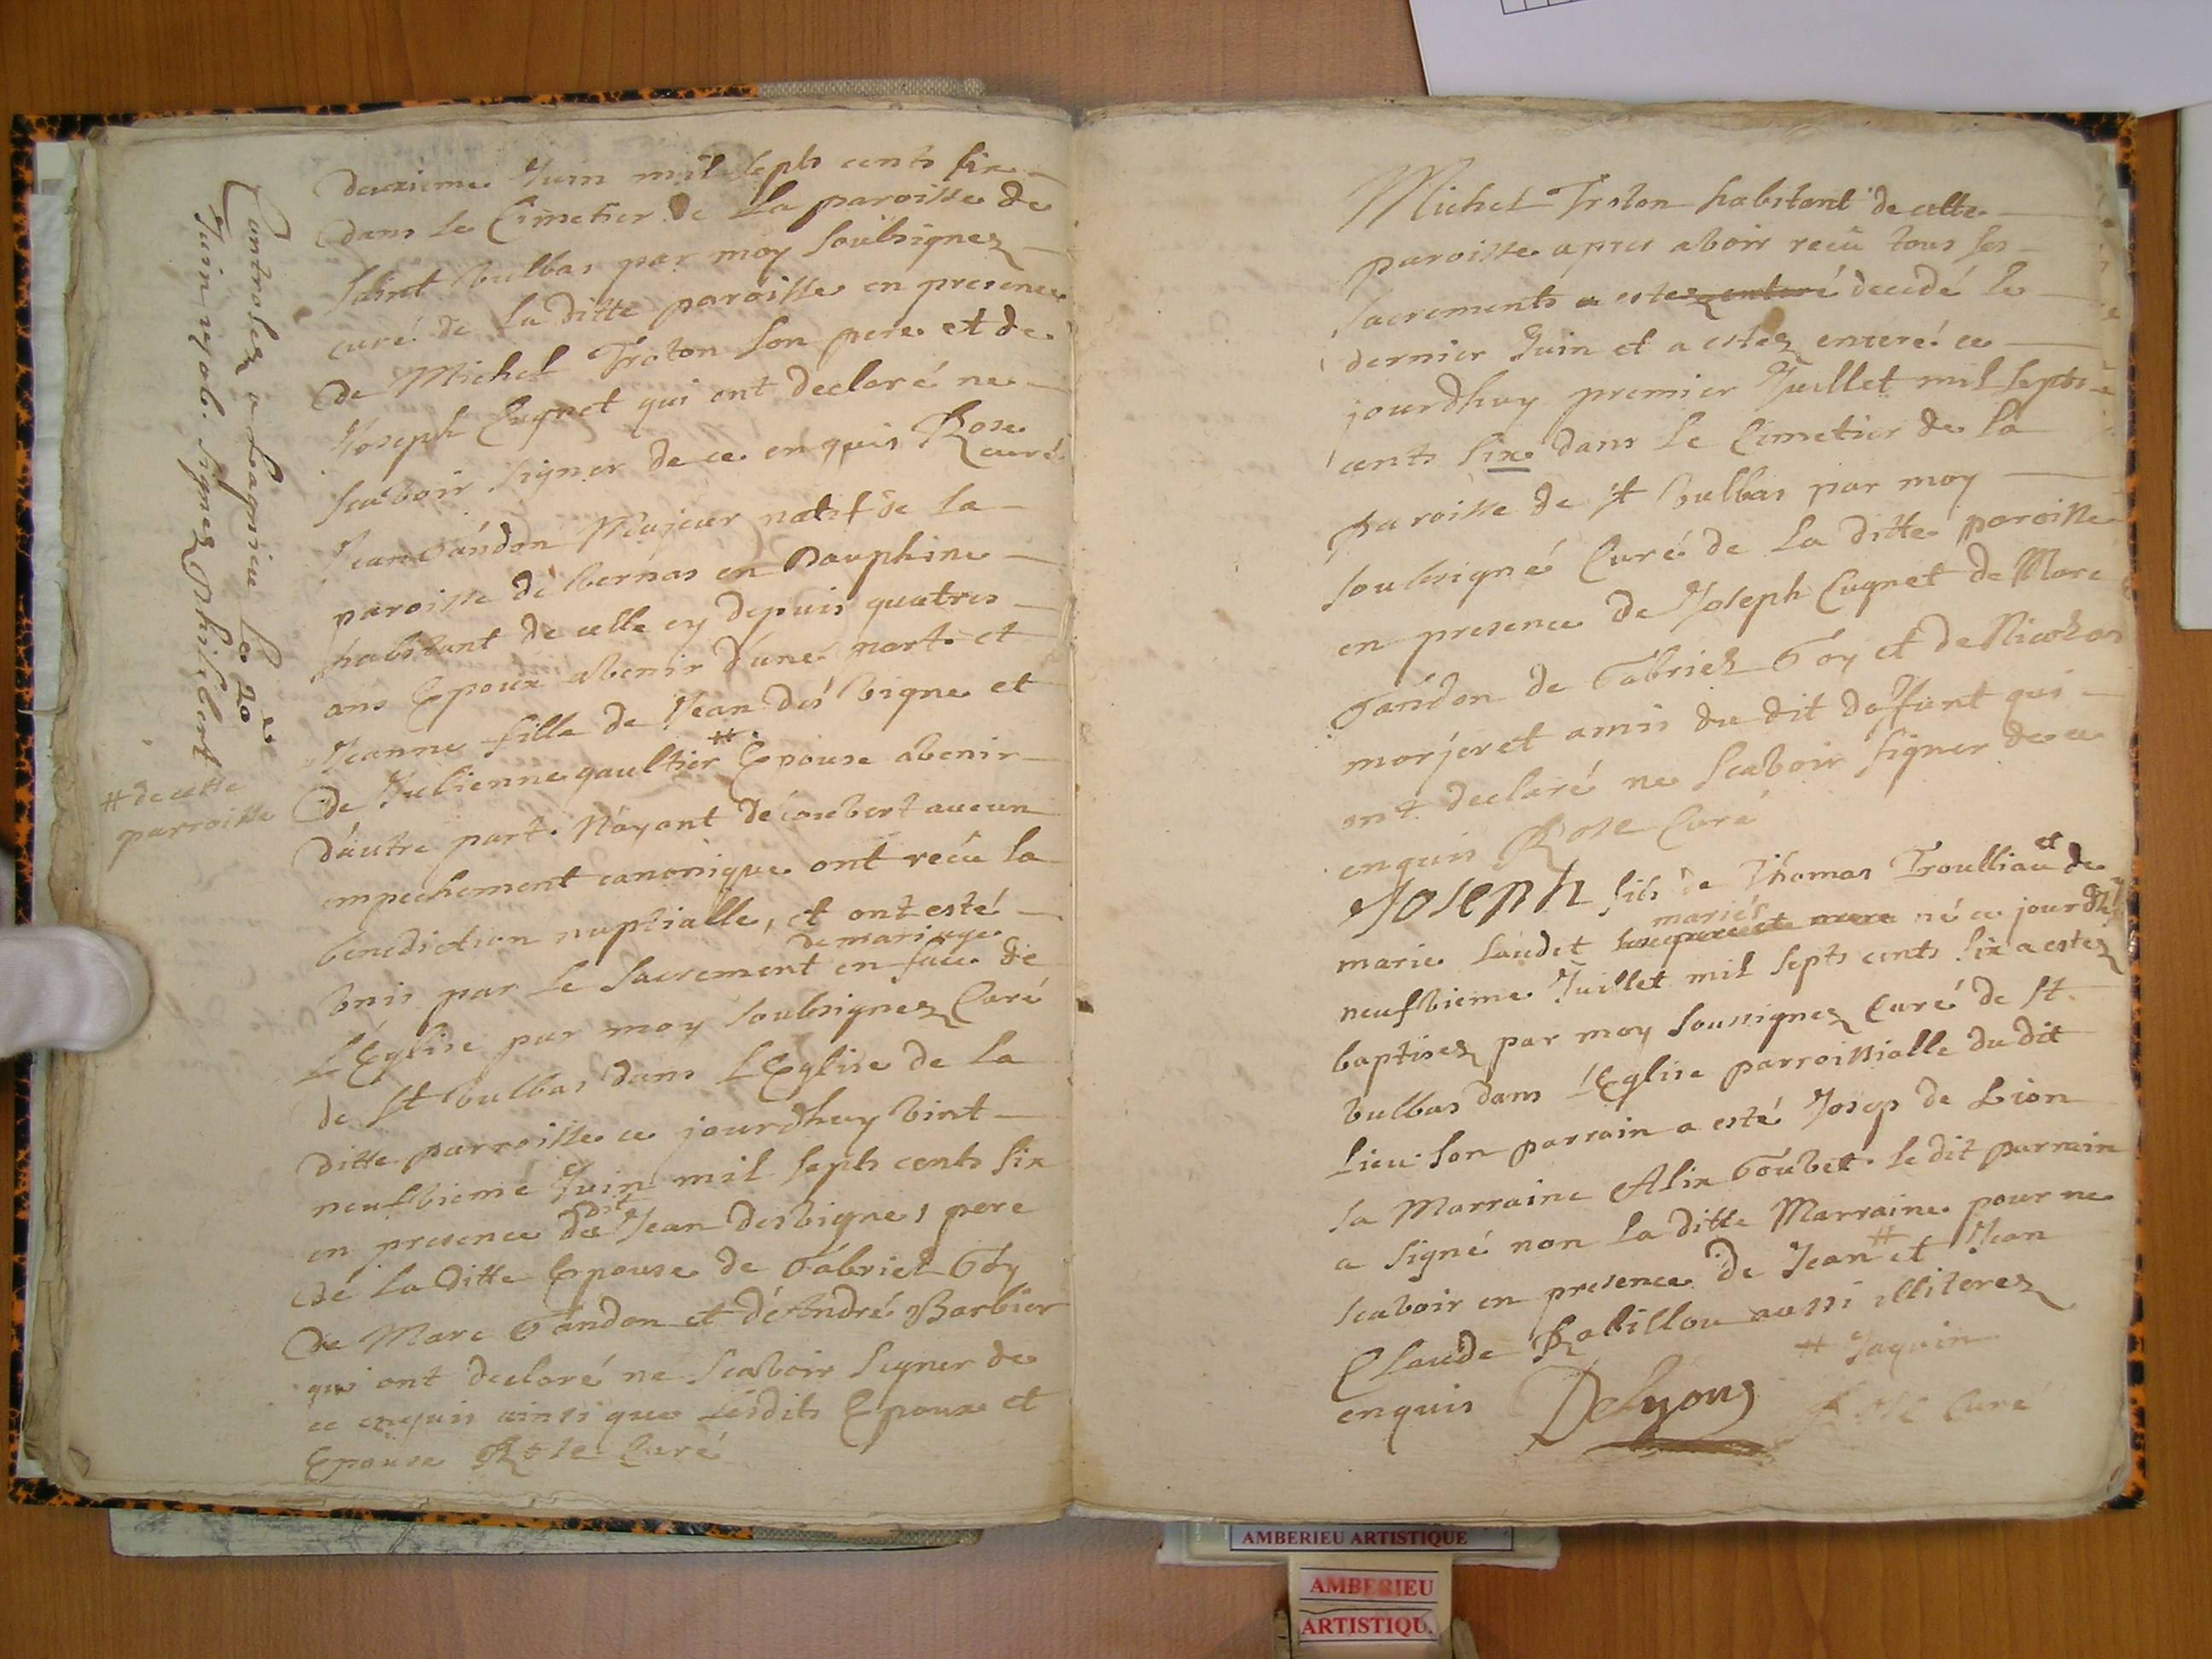 deuxieme Juin mil septs cents six
dans le Cimetier de La paroisse de
saint Vulbas par moy soubsignez
curé de La ditte paroisse en presence
de Michel Troton son pere et de
Joseph Cugnet qui ont declaré ne
scavoir signer de ce enquis Rose
curé
Jean Tandon Majeur natif de la
paroisse de Vernas en Dauphine
habitant de celle cy depuis quatres
ans Epoux avenir d'une part et
Jeanne fille de Jean des Vigne et
de Julienne gaultier # Epouse avenir
d'autre part. N'ayant découvert aucun
empechement canonique ont recü la
benediction nuptialle, et ont esté
de mariage
Vnis par le Sacrement en face de
L'Eglise par moy soubsignez Curé
de St Vulbas dans L'Eglise de la
ditte parroisse ce jourdhuy vint
neufvieme Juin mil septs cents six
dit
en presence de Jean desvignes pere
de La ditte Epouse de Gabriel Goy
de Marc Tandon et de André Barbier
qui ont declaré ne scavoir signer de
ce enquis ainsi que lesdits Epoux et
Epouse Rose Curé
Controlez a Lagnieu Le 20e
Juin 1706. Signez Philibert
# de cette
parroisse
Michel Troton habitant de cette
paroisse apres avoir recü tous ses
sacrements a estez enteré decedé le
dernier Juin et a estez enteré ce
jourdhuy premier Juillet mil septs
cents six dans le Cimetier de la
Paroisse de St Vulbas par moy
soubsigné Curé de La ditte paroisse
en presence de Joseph Cugnet de Marc
Tandon de Gabriel Goy et de Nicolas
morjeret amis du dit deffunt qui
ont declaré ne scavoir signer de ce
enquis Rose Curé
et
Joseph fils de Thomas Troulliau de
mariés
marie Laudet né ce jourdh
neufvieme Juillet mil septs cents six a estez
baptisez par moy soussignez Curé de St
Vulbas dans l'Eglise parroissialle du dit
Lieu son parrain a esté Josep de Lion
sa Marraine Alix Goubet le dit parrain
a signé non la ditte Marraine pour ne
scavoir en presence de Jean # et Jean
Claude Rabillou aussi illiterez
enquis Delyons # Jaquin
Rose Curé
AMBERIEU ARTISTIQUE
AMBERIEU
ARTISTIQU